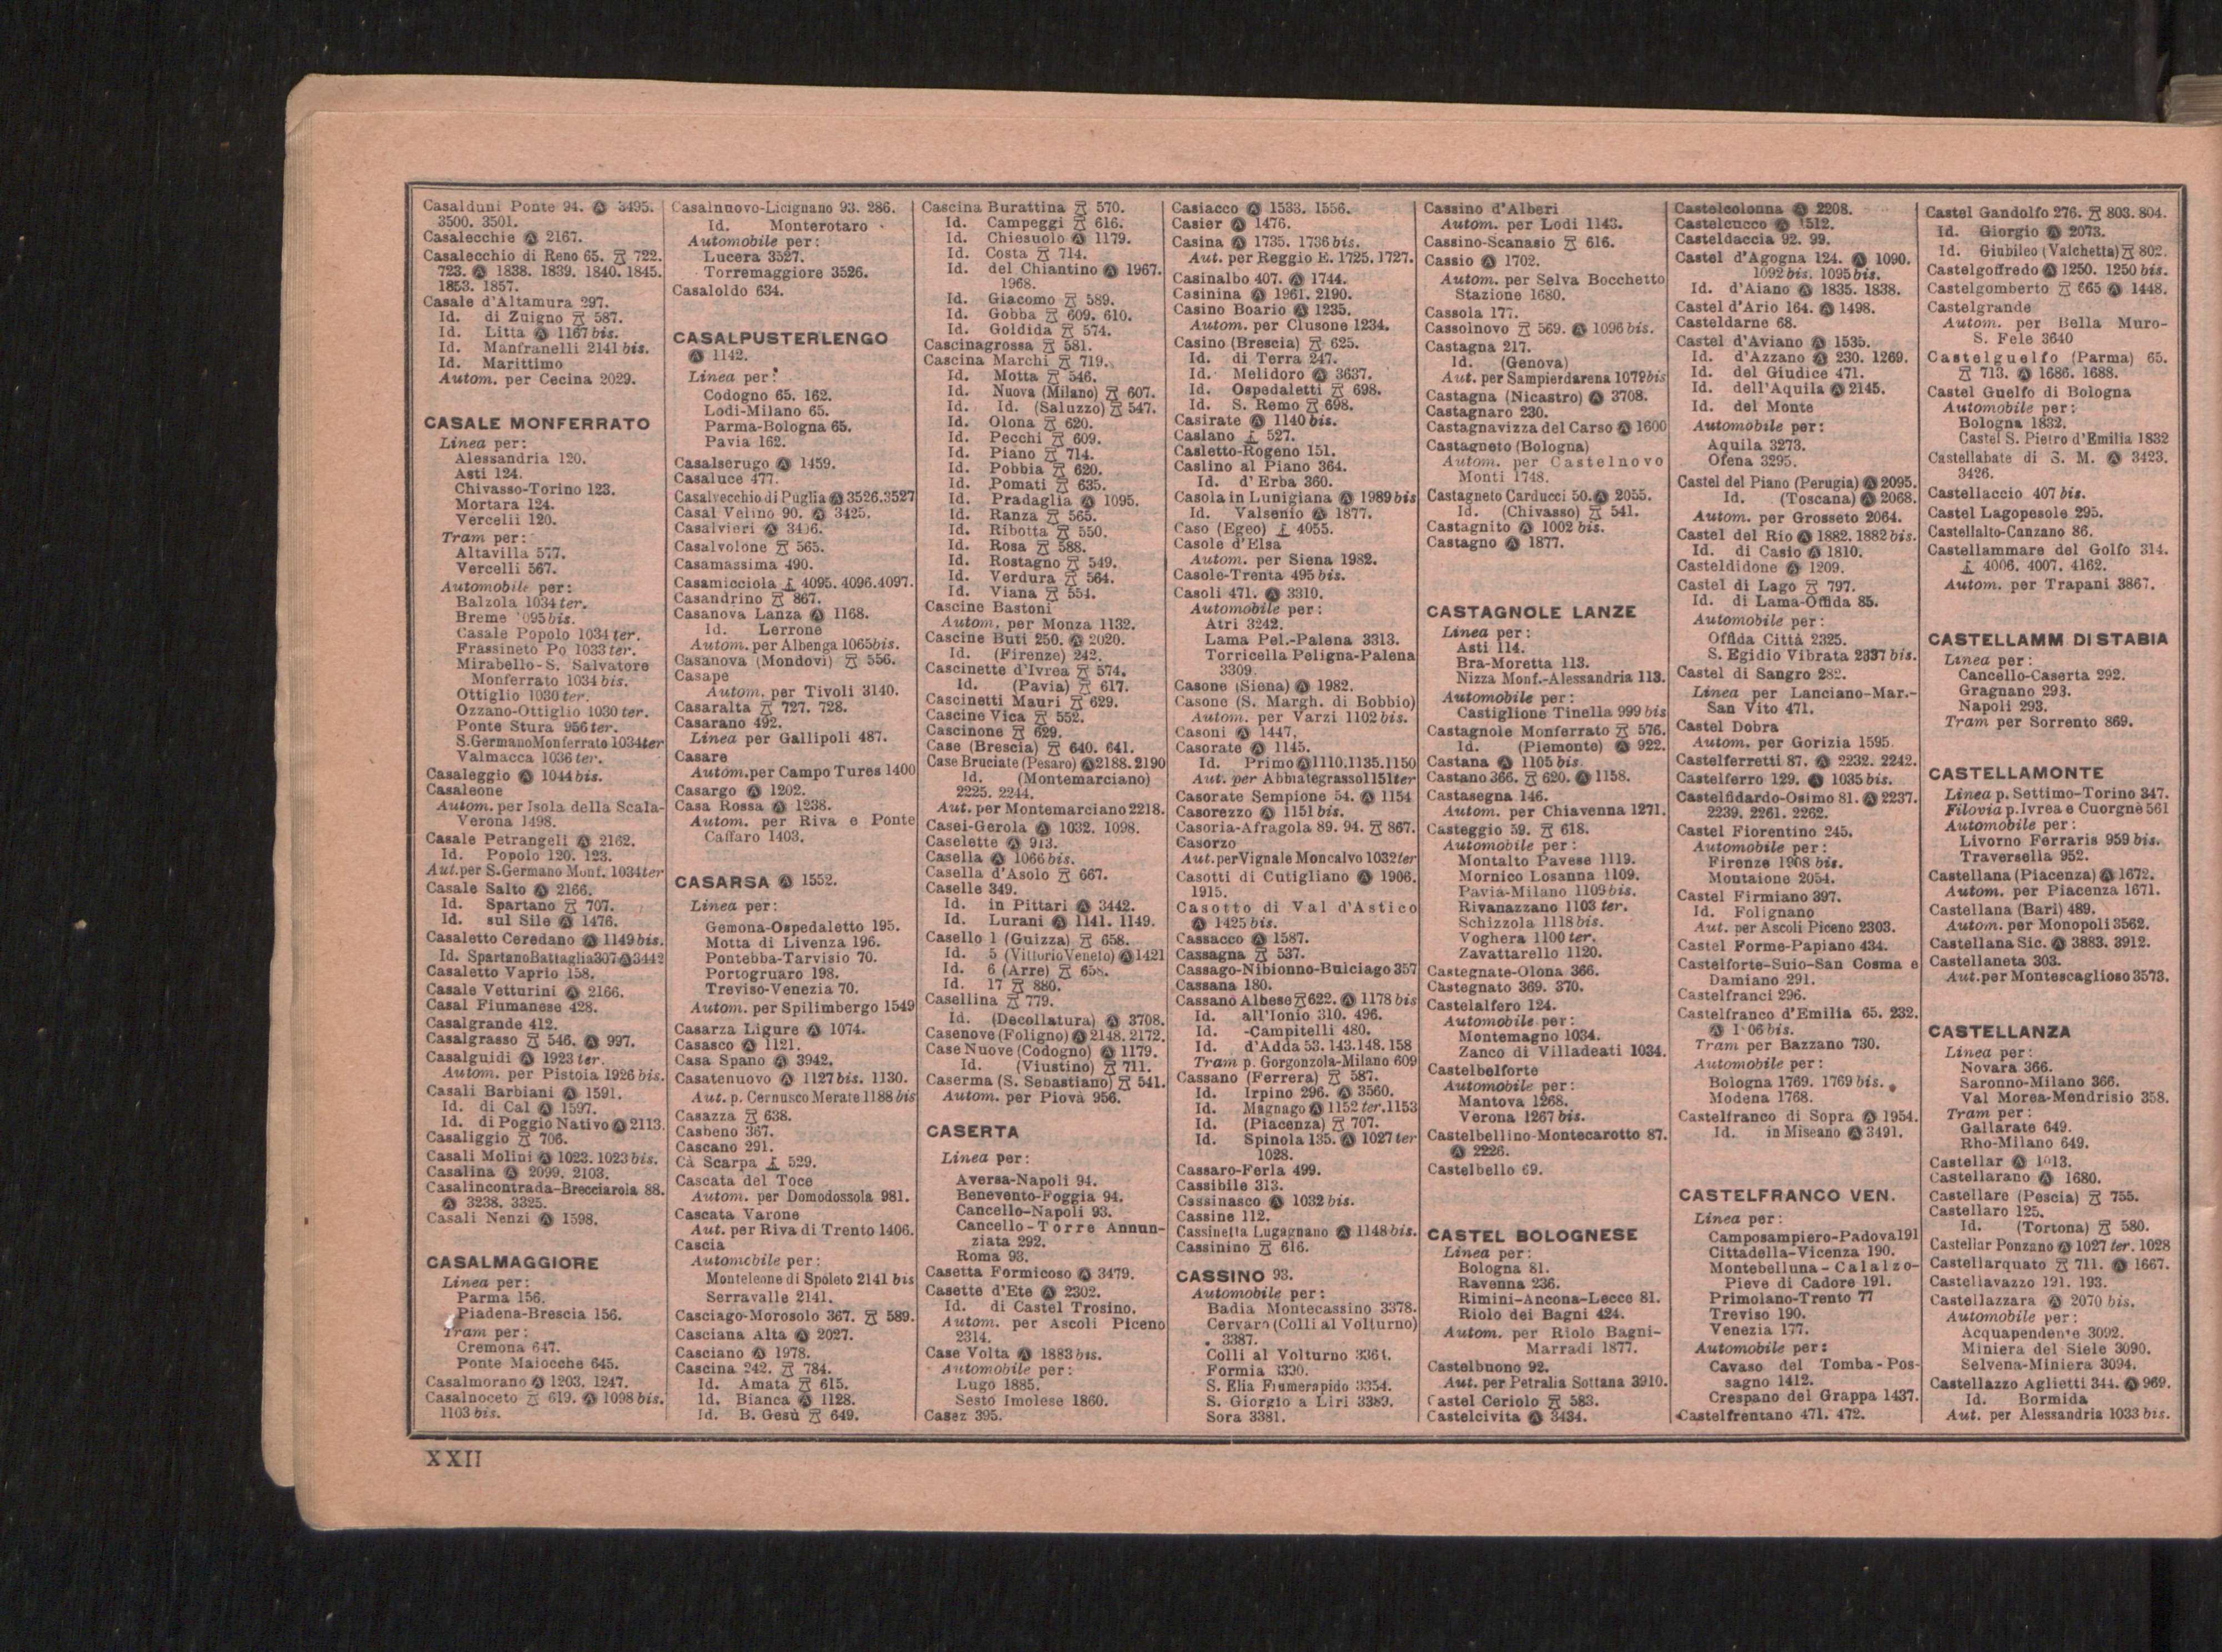 Casalduni Ponte 94. Ⓐ 3495.
3500. 3501.
Casalecchie Ⓐ 2167.
Casalecchio di Reno 65. 722.
723. Ⓐ 1838. 1839. 1840. 1845.
1853. 1857.
Casale d'Altamura 297.
Id. di Zuigno 587.
Id. Litta Ⓐ 1167 bis.
Id. Manfranelli 2141 bis.
Id. Marittimo
Autom. per Cecina 2029.
CASALE MONFERRATO
Linea per:
Alessandria 120.
Asti 124.
Chivasso-Torino 123.
Mortara 124.
Vercelli 120.
Tram per:
Altavilla 577.
Vercelli 567.
Automobile per:
Balzola 1034 ter.
Breme 095 bis.
Casale Popolo 1034 ter.
Frassineto Po 1033 ter.
Mirabello-S. Salvatore
Monferrato 1034 bis.
Ottiglio 1030 ter.
Ozzano-Ottiglio 1030 ter.
Ponte Stura 956 ter.
S. Germano Monferrato 1034 ter
Valmacca 1036 ter.
Casaleggio Ⓐ 1044 bis.
Casaleone
Autom. per Isola della Scala-
Verona 1498.
Casale Petrangeli Ⓐ 2162.
Id. Popolo 120. 123.
Aut. per S. Germano Monf. 1034 ter
Casale Salto Ⓐ 2166.
Id. Spartano 707.
Id. sul Sile Ⓐ 1476.
Casaletto Ceredano Ⓐ 1149 bis.
Id. Spartano Battaglia 307 Ⓐ 3442
Casaletto Vaprio 158.
Casale Vetturini Ⓐ 2166.
Casal Fiumanese 428.
Casalgrande 412.
Casalgrasso 546. Ⓐ 997.
Casalguidi Ⓐ 1923 ter.
Autom. per Pistoia 1926 bis.
Casali Barbiani Ⓐ 1591.
Id. di Cal Ⓐ 1597.
Id. di Poggio Nativo Ⓐ 2113.
Casaliggio 706.
Casali Molini Ⓐ 1023. 1023 bis.
Casalina Ⓐ 2099. 2103.
Casalincontrada-Brecciarola 88.
Ⓐ 3238. 3325.
Casali Nenzi Ⓐ 1598.
CASALMAGGIORE
Linea per:
Parma 156.
Piadena-Brescia 156.
Tram per:
Cremona 647.
Ponte Maiocche 645.
Casalmorano Ⓐ 1203. 1247.
Casalnoceto 619. Ⓐ 1098 bis.
1103 bis.
Casalnuovo-Licignano 93. 286.
Id. Monterotaro
Automobile per:
Lucera 3527.
Torremaggiore 3526.
Casaloldo 634.
CASALPUSTERLENGO
Ⓐ 1142.
Linea per:
Codogno 65. 162.
Lodi-Milano 65.
Parma-Bologna 65.
Pavia 162.
Casalserugo Ⓐ 1459.
Casaluce 477.
Casalvecchio di Puglia Ⓐ 3526.3527
Casal Velino 90. Ⓐ 3425.
Casalvieri Ⓐ
Casalvolone 565.
Casamassima 490.
Casamicciola 4095. 4096. 4097.
Casandrino 867.
Casanova Lanza Ⓐ 1168.
Id. Lerrone
Autom. per Albenga 1065bis.
Casanova (Mondovì) 556.
Casape
Autom. per Tivoli 3140.
Casaralta 727. 728.
Casarano 492.
Linea per Gallipoli 487.
Casare
Autom. per Campo Tures 1400
Casargo Ⓐ 1202.
Casa Rossa Ⓐ 1238.
Autom. per Riva e Ponte
Caffaro 1403.
CASARSA Ⓐ 1552.
Linea per:
Gemona-Ospedaletto 195.
Motta di Livenza 196.
Pontebba-Tarvisio 70.
Portogruaro 198.
Treviso-Venezia 70.
Autom. per Spilimbergo 1549
Casarza Ligure Ⓐ 1074.
Casasco Ⓐ 1121.
Casa Spano Ⓐ 3942.
Casatenuovo Ⓐ 1127 bis. 1130.
Aut. p. Cernusco Merate 1188 bis
Casazza 638.
Casbeno 367.
Cascano 291.
Cà Scarpa 529.
Cascata del Toce
Autom. per Domodossola 981.
Cascata Varone
Aut. per Riva di Trento 1406.
Cascia
Automobile per:
Monteleone di Spoleto 2141 bis
Serravalle 2141.
Casciago-Morosolo 367. 589.
Casciana Alta Ⓐ 2027.
Casciano Ⓐ 1978.
Cascina 242. 784.
Id. Amata 615.
Id. Bianca Ⓐ 1128.
Id. B. Gesù 649.
Cascina Burattina 570.
Id. Campeggi 616.
Id. Chiesuolo Ⓐ 1179.
Id. Costa 714.
Id. del Chiantino Ⓐ 1967.
1968.
Id. Giacomo 589.
Id. Gobba 609. 610.
Id. Goldida 574.
Cascinagrossa 581.
Cascina Marchi 719.
Id. Motta 546.
Id. Nuova (Milano) 607.
Id. Id. (Saluzzo) 547.
Id. Olona 620.
Id. Pecchi 609.
Id. Piano 714.
Id. Pobbia 620.
Id. Pomati 635.
Id. Pradaglia Ⓐ 1095.
Id. Ranza 565.
Id. Ribotta 550.
Id. Rosa 588.
Id. Rostagno 549.
Id. Verdura 564.
Id. Viana 554.
Cascine Bastoni
Autom. per Monza 1132.
Cascine Buti 250. Ⓐ 2020.
Id. (Firenze) 242.
Cascinette d'Ivrea 574.
Id. (Pavia) 617.
Cascinetti Mauri 629.
Cascine Vica 552.
Cascinone 629.
Case (Brescia) 640. 641.
Case Bruciate (Pesaro) Ⓐ 2188. 2190
Id. (Montemarciano)
2225. 2244.
Aut. per Montemarciano 2218.
Casei-Gerola Ⓐ 1032. 1098.
Caselette Ⓐ 913.
Casella Ⓐ 1066 bis.
Casella d'Asolo 667.
Caselle 349.
Id. in Pittari Ⓐ 3442.
Id. Lurani Ⓐ 1141. 1149.
Casello 1 (Guizza) 658.
Id. 5 (Vittorio Veneto) Ⓐ 1421
Id. 6 (Arre) 658.
Id. 17 880.
Casellina 779.
Id. (Decollatura) Ⓐ 3708.
Casenove (Foligno) Ⓐ 2148. 2172.
Case Nuove (Codogno) Ⓐ 1179.
Id. (Viustino) 711.
Caserma (S. Sebastiano) 541.
Autom. per Piovà 956.
CASERTA
Linea per:
Aversa-Napoli 94.
Benevento-Foggia 94.
Cancello-Napoli 93.
Cancello-Torre Annun-
ziata 292.
Roma 93.
Casetta Formicoso Ⓐ 3479.
Casette d'Ete Ⓐ 2302.
Id. di Castel Trosino.
Autom. per Ascoli Piceno
2314.
Case Volta Ⓐ 1883 bis.
Automobile per:
Lugo 1885.
Sesto Imolese 1860.
Casez 395.
Casiacco Ⓐ 1533. 1556.
Casier Ⓐ 1476.
Casina Ⓐ 1735. 1736 bis.
Aut. per Reggio E. 1725. 1727.
Casinalbo 407. Ⓐ 1744.
Casinina Ⓐ 1961. 2190.
Casino Boario Ⓐ 1235.
Autom. per Clusone 1234.
Casino (Brescia) 625.
Id. di Terra 247.
Id. Melidoro Ⓐ 3637.
Id. Ospedaletti 698.
Id. S. Remo 698.
Casirate Ⓐ 1140 bis.
Caslano 527.
Casletto-Rogeno 151.
Caslino al Piano 364.
Id. d'Erba 360.
Casola in Lunigiana Ⓐ 1989 bis
Id. Valsenio Ⓐ 1877.
Caso (Egeo) 4055.
Casole d'Elsa
Autom. per Siena 1982.
Casole-Trenta 495 bis.
Casoli 471. Ⓐ 3310.
Automobile per:
Atri 3242.
Lama Pel.-Palena 3313.
Torricella Peligna-Palena
3309.
Casone (Siena) Ⓐ 1982.
Casone (S. Margh. di Bobbio)
Autom. per Varzi 1102 bis.
Casoni Ⓐ 1447.
Casorate Ⓐ 1145.
Id. Primo Ⓐ 1110.1135.1150
Aut. per Abbiategrasso 1151ter
Casorate Sempione 54. Ⓐ 1154
Casorezzo Ⓐ 1151 bis.
Casoria-Afragola 89. 94. 867.
Casorzo
Aut. per Vignale Moncalvo 1032ter
Casotti di Cutigliano Ⓐ 1906.
1915.
Casotto di Val d'Astico
Ⓐ 1425 bis.
Cassacco Ⓐ 1587.
Cassagna 537.
Cassago-Nibionno-Bulciago 357
Cassana 180.
Cassano Albese 622. Ⓐ 1178 bis
Id. all'Ionio 310. 496.
Id. -Campitelli 480.
Id. d'Adda 53. 143. 148. 158
Tram p. Gorgonzola-Milano 609
Cassano (Ferrera) 587.
Id. Irpino 296. Ⓐ 3560.
Id. Magnago Ⓐ 1152 ter. 1153
Id. (Piacenza) 707.
Id. Spinola 135. Ⓐ 1027 ter
1028.
Cassaro-Ferla 499.
Cassibile 313.
Cassinasco Ⓐ 1032 bis.
Cassine 112.
Cassinetta Lugagnano Ⓐ 1148 bis.
Cassinino 616.
CASSINO 93.
Automobile per:
Badia Montecassino 3378.
Cervaro (Colli al Volturno)
3387.
Colli al Volturno 3361.
Formia 3390.
S. Elia Fiumerapido 3354.
S. Giorgio a Liri 3389.
Sora 3381.
Cassino d'Alberi
Autom. per Lodi 1143.
Cassino-Scanasio 616.
Cassio Ⓐ 1702.
Autom. per Selva Bocchetto
Stazione 1680.
Cassola 177.
Cassolnovo 569. Ⓐ 1096 bis.
Castagna 217.
Id. (Genova)
Aut. per Sampierdarena 1079 bis
Castagna (Nicastro) Ⓐ 3708.
Castagnaro 230.
Castagnavizza del Carso Ⓐ 1600
Castagneto (Bologna)
Autom. per Castelnovo
Monti 1748.
Castagneto Carducci 50. Ⓐ 2055.
Id. (Chivasso) 541.
Castagnito Ⓐ 1002 bis.
Castagno Ⓐ 1877.
CASTAGNOLE LANZE
Linea per:
Asti 114.
Bra-Moretta 113.
Nizza Monf.-Alessandria 113.
Automobile per:
Castiglione Tinella 999 bis
Castagnole Monferrato 576.
Id. (Piemonte) Ⓐ 922.
Castana Ⓐ 1105 bis
Castano 366. 620. Ⓐ 1158.
Castasegna 146.
Autom. per Chiavenna 1271.
Casteggio 59. 618.
Automobile per:
Montalto Pavese 1119.
Mornico Losanna 1109.
Pavia-Milano 1109 bis.
Rivanazzano 1103 ter.
Schizzola 1118 bis.
Voghera 1100 ter.
Zavattarello 1120.
Castegnate-Olona 366.
Castegnato 369. 370.
Castelalfero 124.
Automobile per:
Montemagno 1034.
Zanco di Villadeati 1034.
Castelbelforte
Automobile per:
Mantova 1268.
Verona 1267 bis.
Castelbellino-Montecarotto 87.
Ⓐ 2226.
Castelbello 69.
CASTEL BOLOGNESE
Linea per:
Bologna 81.
Ravenna 236.
Rimini-Ancona-Lecce 81.
Riolo dei Bagni 424.
Autom. per Riolo Bagni-
Marradi 1877.
Castelbuono 92.
Aut. per Petralia Sottana 3910.
Castel Ceriolo 583.
Castelcivita Ⓐ 3434.
Castelcolonna Ⓐ 2208.
Castelcucco Ⓐ 1512.
Casteldaccia 92. 99.
Castel d'Agogna 124. Ⓐ 1090.
1092 bis. 1095 bis.
Id. d'Aiano Ⓐ 1835. 1838.
Castel d'Ario 164. Ⓐ 1498.
Casteldarne 68.
Castel d'Aviano Ⓐ 1535.
Id. d'Azzano Ⓐ 230. 1269.
Id. del Giudice 471.
Id. dell'Aquila Ⓐ 2145.
Id. del Monte
Automobile per:
Aquila 3273.
Ofena 3295.
Castel del Piano (Perugia) Ⓐ 2095.
Id. (Toscana) Ⓐ 2068.
Autom. per Grosseto 2064.
Castel del Rio Ⓐ 1882. 1882 bis.
Id. di Casio Ⓐ 1810.
Casteldidone Ⓐ 1209.
Castel di Lago 797.
Id. di Lama-Offida 85.
Automobile per:
Offida Città 2325.
S. Egidio Vibrata 2337 bis.
Castel di Sangro 282.
Linea per Lanciano-Mar.-
San Vito 471.
Castel Dobra
Autom. per Gorizia 1595.
Castelferretti 87. Ⓐ 2232. 2242.
Castelferro 129. Ⓐ 1035 bis.
Castelfidardo-Osimo 81. Ⓐ 2237.
2239. 2261. 2262.
Castel Fiorentino 245.
Automobile per:
Firenze 1908 bis.
Montaione 2054.
Castel Firmiano 397.
Id. Folignano
Aut. per Ascoli Piceno 2303.
Castel Forme-Papiano 434.
Castelforte-Suio-San Cosma e
Damiano 291.
Castelfranci 296.
Castelfranco d'Emilia 65. 232.
Ⓐ 1 06 bis.
Tram per Bazzano 730.
Automobile per:
Bologna 1769. 1769 bis.
Modena 1768.
Castelfranco di Sopra Ⓐ 1954.
Id. in Miscano Ⓐ 3491.
CASTELFRANCO VEN.
Linea per:
Camposampiero-Padova 191
Cittadella-Vicenza 190.
Montebelluna-Calalzo-
Pieve di Cadore 191.
Primolano-Trento 77
Treviso 190.
Venezia 177.
Automobile per:
Cavaso del Tomba-Pos-
sagno 1412.
Crespano del Grappa 1437.
Castelfrentano 471. 472.
Castel Gandolfo 276. 803. 804.
Id. Giorgio Ⓐ 2073.
Id. Giubileo (Valchetta) 802.
Castelgoffredo Ⓐ 1250. 1250 bis.
Castelgomberto 665 Ⓐ 1448.
Castelgrande
Autom. per Bella Muro-
S. Fele 3640
Castelguelfo (Parma) 65.
713. Ⓐ 1686. 1688.
Castel Guelfo di Bologna
Automobile per:
Bologna 1832.
Castel S. Pietro d'Emilia 1832
Castellabate di S. M. Ⓐ 3423.
3426.
Castellaccio 407 bis.
Castel Lagopesole 295.
Castellalto-Canzano 86.
Castellammare del Golfo 314.
4006. 4007. 4162.
Autom. per Trapani 3867.
CASTELLAMM DI STABIA
Linea per:
Cancello-Caserta 292.
Gragnano 293.
Napoli 293.
Tram per Sorrento 869.
CASTELLAMONTE
Linea p. Settimo-Torino 347.
Filovia p. Ivrea e Cuorgnè 561
Automobile per:
Livorno Ferraris 959 bis.
Traversella 952.
Castellana (Piacenza) Ⓐ 1672.
Autom. per Piacenza 1671.
Castellana (Bari) 489.
Autom. per Monopoli 3562.
Castellana Sic. Ⓐ 3883. 3912.
Castellaneta 303.
Aut. per Montescaglioso 3573.
CASTELLANZA
Linea per:
Novara 366.
Saronno-Milano 366.
Val Morea-Mendrisio 358.
Tram per:
Gallarate 649.
Rho-Milano 649.
Castellar Ⓐ 1013.
Castellarano Ⓐ 1680.
Castellare (Pescia) 755.
Castellaro 125.
Id. (Tortona) 580.
Castellar Ponzano Ⓐ 1027 ter. 1028
Castellarquato 711. Ⓐ 1667.
Castellavazzo 191. 193.
Castellazzara Ⓐ 2070 bis.
Automobile per:
Acquapendente 3092.
Miniera del Siele 3090.
Selvena-Miniera 3094.
Castellazzo Aglietti 344. Ⓐ 969.
Id. Bormida
Aut. per Alessandria 1033 bis.
XXII